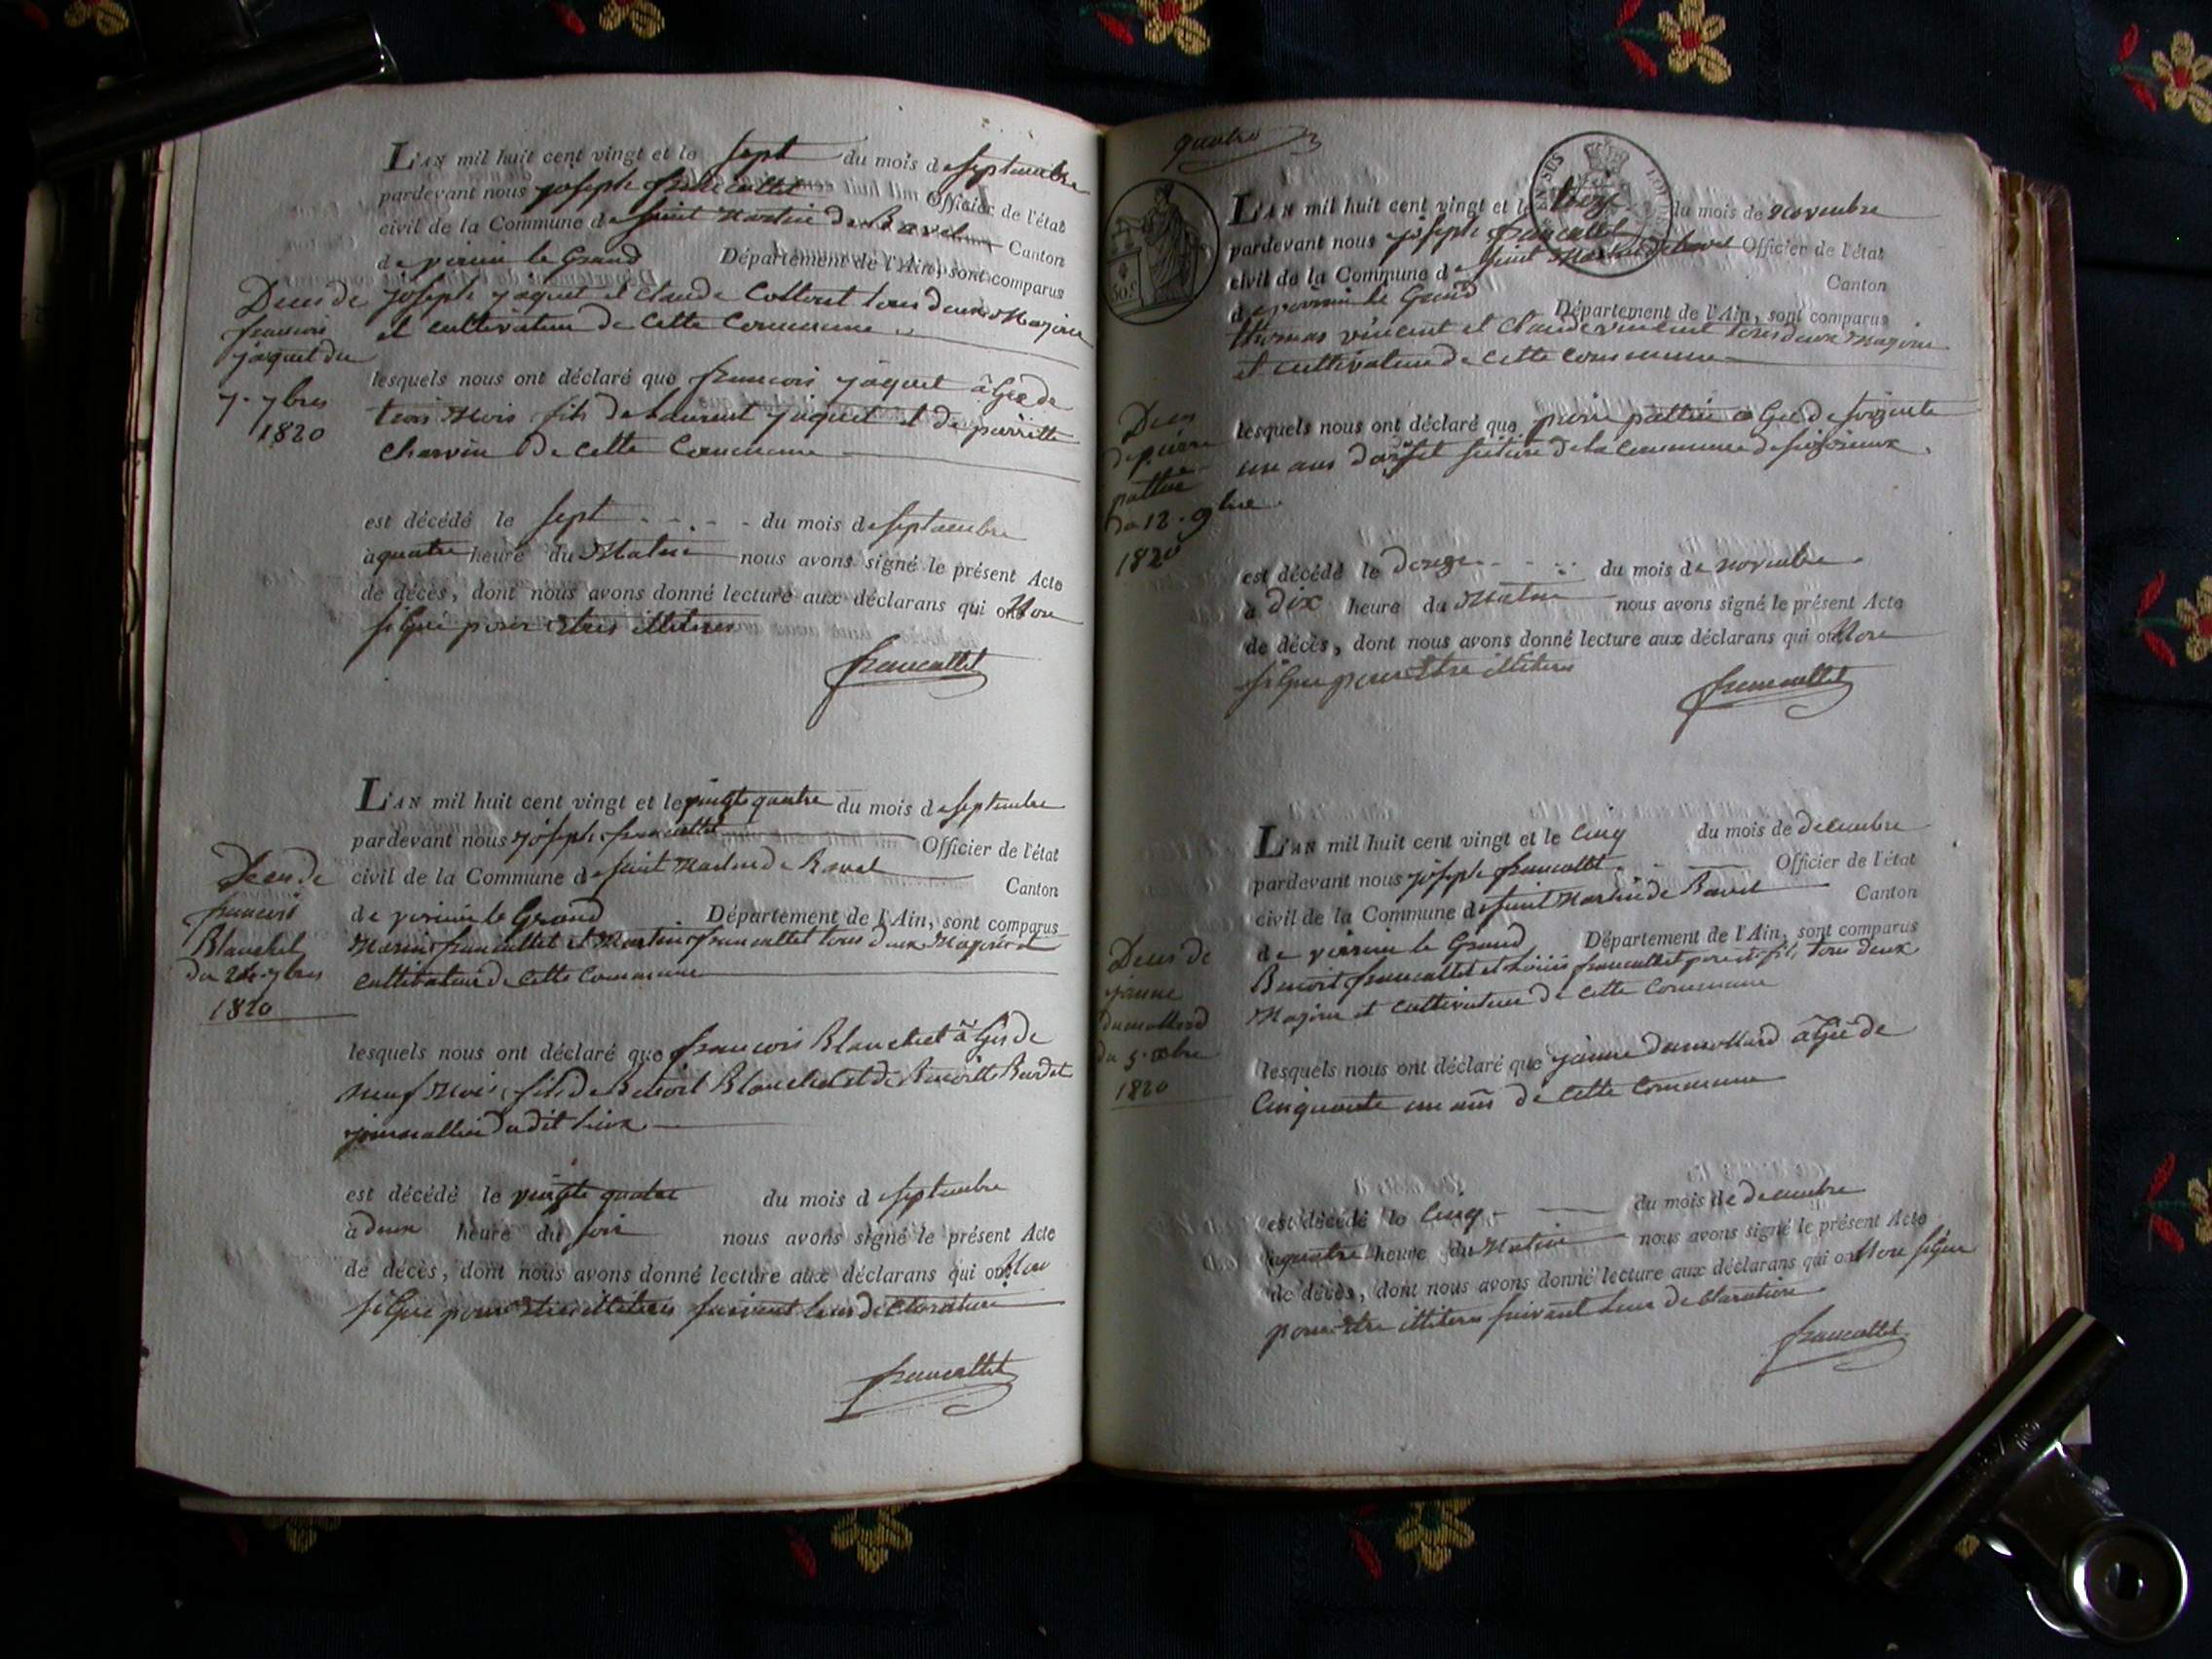 L'AN mil huit cent vingt et le sept du mois de septembre
pardevant nous joseph francallet Officier de l'état
civil de la Commune de saint Martin de Bavel Canton
de virieu le Grand Département de l'Ain, sont comparus
joseph jaquet et Claude Collout tous deux Majeur
et cultivateur de cette Commune
Deces de
francois
jaquet du
7. 7bres
1820
lesquels nous ont déclaré que francois jaquet âGée de
trois Mois fils de Laurent jaquet et de pierrette
Charvin de cette Commune
est décédé le sept du mois de septembre
a quatre heure du Matin nous avons signé le présent Acte
de décès, dont nous avons donné lecture aux déclarans qui ont Non
siGné pour etres illiteres
francallet
L'AN mil huit cent vingt et le vingte quatre du mois de septembre
pardevant nous joseph francallet Officier de l'état
civil de la Commune de saint Martin de Bavel Canton
de virieu le Grand Département de l'Ain, sont comparus
Marin francallet et Martin francallet tous deux Majeur et
cultivateur de cette Commune
Deces de
francois
Blanchet
du 24. 7bres
1820
lesquels nous ont déclaré que francois Blanchet âGés de
neuf Mois, fils de Benoit Blanchet et de Benoitte Burdet
journallier dudit lieux
est décédé le vingte quatre du mois d septembre
à deux heure du soir nous avons signé le présent Acte
de décès, dont nous avons donné lecture aux déclarans qui ont Non
siGné pour etres illiteres suivant leur declaration
francallet
quatre
L'AN mil huit cent vingt et le du mois de Novembre
pardevant nous joseph francallet Officier de l'état
civil de la Commune de saint Martin de bavel Canton
de virieu le Grand Département de l'Ain, sont comparus
thomas vincent et Claude vincent tous deux Majeur
et cultivateur de cette commune
Deces
de pierre
pattue
du 12. 9bre
1820
lesquels nous ont déclaré que pierre pattue aGée de soixante
un ans de la Commune de
est décédé le douze du mois de novembre
a dix heure du Matin nous avons signé le présent Acte
de décès, dont nous avons donné lecture aux déclarans qui ont Non
siGné pour Etre illiteres
francallet
L'AN mil huit cent vingt et le cinq du mois de decembre
pardevant nous joseph francallet Officier de l'état
civil de la Commune de saint Martin de Bavel Canton
de virieu le Grand Département de l'Ain, sont comparus
Benoit francallet et Louis francallet pere et fils tous deux
Majeur et cultivateur de cette Commune
Deces de
jeanne
dumollard
du 5. xbre
1820
lesquels nous ont déclaré que jeanne Dumollard âGée de
Cinquante un ans de cette Commune
est décédé le cinq du mois de decembre
a quatre heure du Matin nous avons signé le présent Acte
de décès, dont nous avons donné lecture aux déclarans qui ont Non siGné
pour Etre illiteres suivant leur declaration
francallet